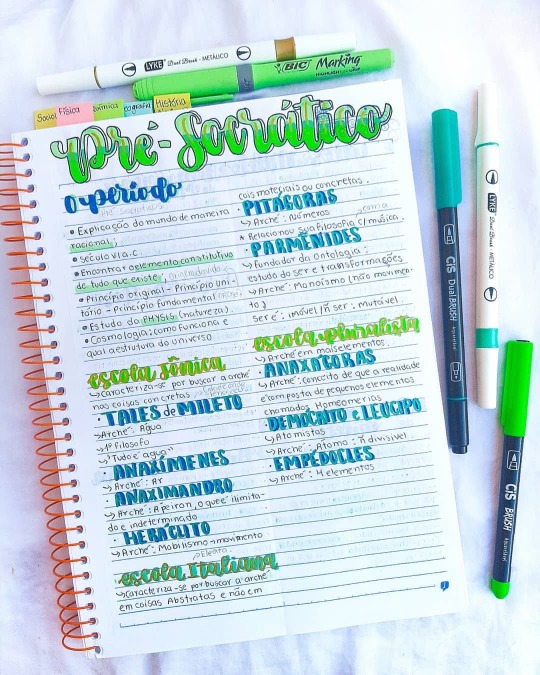 LYKE Dual Brush - METÁLICO
BIC Marking
HIGHLIGHTER
Social
Física
Química
Geografia
História
Pré-Socrático
O período
• Explicação do mundo de maneira
racional.
• século VI a.C
• Encontrar o elemento constitutivo
de tudo que existe,
• Princípio original - Princípio uni-
tário - Princípio fundamental
• Estudo da PHYSIS (natureza)
• Cosmologia: como funciona e
qual a estrutura do universo
escola Jônica
↳ Caracteriza-se por buscar a arché
nas coisas concretas
• TALES de MILETO
↳ Arché: Água
↳ 1º filósofo
↳ "Tudo é água"
• ANAXÍMENES
↳ Arché: Ar
• ANAXIMANDRO
↳ Arché: Apeiron, o que é ilimita-
do e indeterminado
• HERÁCLITO
↳ Arché: Mobilismo → movimento
Eleata
escola Italiana
↳ Caracteriza-se por buscar a arché
em coisas Abstratas e não em
cois materiais ou concretas.
PITÁGORAS
↳ Arché: números
* Relacionou sua filosofia c/ música.
PARMÊNIDES
↳ Fundador da Ontologia:
estudo do ser e transformações
↳ Arché: Monoísmo (não movimen-
to)
Ser é: imóvel / ñ ser: mutável.
escola pluralista
↳ Arché em mais elementos.
ANAXÁGORAS
↳ Arché: Conceito de que a realidade
é composta de pequenos elementos
chamados Homeomerias
• DEMÓCRATO e LEUCIPO
↳ Atomistas
↳ Arché: Átomo: ñ divisível
• EMPÉDOCLES
↳ Arché: 4 elementos
CIS Dual BRUSH
Aquarelável
LYKE Dual Brush - METÁLICO
CIS BRUSH
Aquarelável